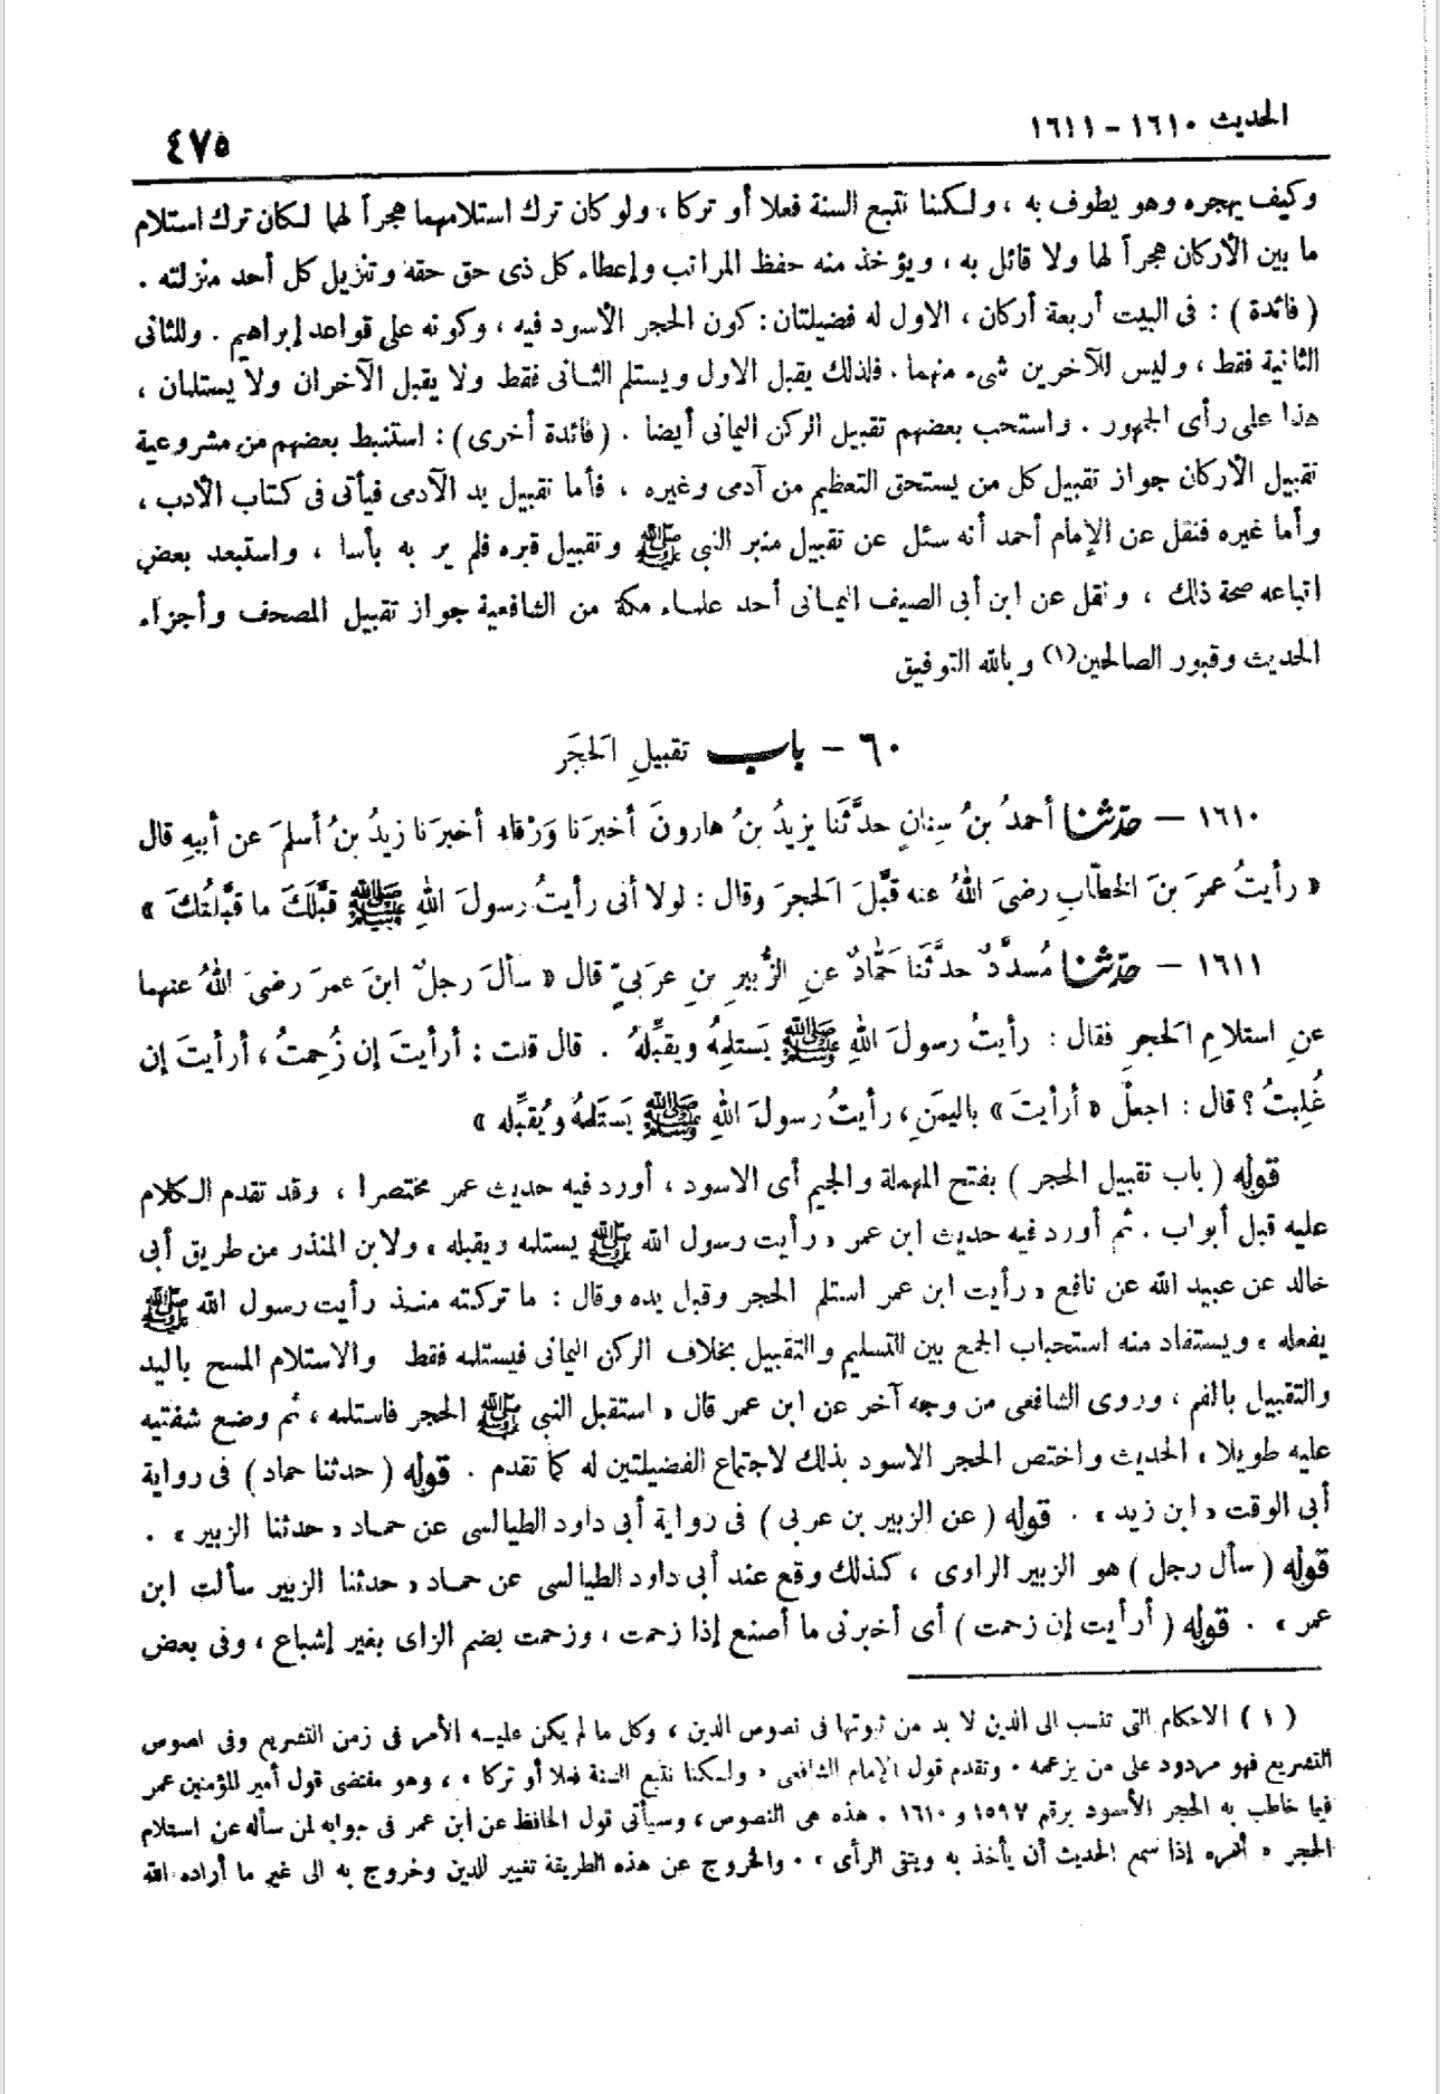 الحديث ١٦١٠ - ١٦١١
٤٧٥
وكيف يهجره وهو يطوف به ، ولكننا نتبع السنة فعلا أو تركا ، ولو كان ترك استلامهما هجراً لهما لكان ترك استلام
ما بين الأركان هجراً لها ولا قائل به ، ويؤخذ منه حفظ المراتب وإعطاء كل ذى حق حقه وتنزيل كل أحد منزلته .
( فائدة ) : فى البيت أربعة أركان ، الاول له فضيلتان : كون الحجر الأسود فيه ، وكونه على قواعد إبراهيم . وللثانى
الثانية فقط ، وليس للآخرين شىء منهما . فلذلك يقبل الاول ويستلم الثانى فقط ولا يقبل الآخران ولا يستلمان ،
هذا على رأى الجمهور . واستحب بعضهم تقبيل الركن اليمانى أيضا . ( فائدة أخرى ) : استنبط بعضهم من مشروعية
تقبيل الأركان جواز تقبيل كل من يستحق التعظيم من آدمى وغيره ، فأما تقبيل يد الآدمى فيأتى فى كتاب الأدب ،
وأما غيره فنقل عن الإمام أحمد أنه سئل عن تقبيل منبر النبى ﷺ وتقبيل قبره فلم ير به بأسا ، واستبعد بعض
اتباعه صحة ذلك ، ونقل عن ابن أبى الصيف اليمانى أحد علماء مكة من الشافعية جواز تقبيل المصحف وأجزاء
الحديث وقبور الصالحين (١) وبالله التوفيق
٦٠ - باب تقبيلِ الحَجَر
١٦١٠ - حدّثنا أحمدُ بنُ سِنانٍ حدَّثَنا يزيدُ بنُ هارونَ أخبرَنا وَرْقاء أخبرَنا زيدُ بنُ أسلمَ عن أبيهِ قال
« رأيتُ عمرَ بنَ الخطّابِ رضىَ اللهُ عنه قبَّلَ الحَجرَ وقال : لولا أنى رأيتُ رسولَ اللهِ ﷺ قبَّلَكَ ما قبَّلتُكَ »
١٦١١ - حدّثنا مُسدَّدٌ حدَّثَنا حَمّادٌ عنِ الزُّبيرِ بنِ عرَبىٍّ قال « سألَ رجلٌ ابنَ عمرَ رضىَ اللهُ عنهما
عنِ استلامِ الحَجرِ فقال : رأيتُ رسولَ اللهِ ﷺ يَستلمُهُ ويقبِّلهُ . قال قلت : أرأيتَ إن زُحِمتُ ، أرأيتَ إن
غُلِبتُ ؟ قال : اجعلْ « أرأيتَ » باليمَنِ ، رأيتُ رسولَ اللهِ ﷺ يَستَلمهُ ويُقبِّله »
قوله ( باب تقبيل الحجر ) بفتح المهملة والجيم أى الاسود ، أورد فيه حديث عمر مختصرا ، وقد تقدم الكلام
عليه قبل أبواب . ثم أورد فيه حديث ابن عمر « رأيت رسول الله ﷺ يستلمه ويقبله » ولابن المنذر من طريق أبى
خالد عن عبيد الله عن نافع « رأيت ابن عمر استلم الحجر وقبل يده وقال : ما تركته منذ رأيت رسول الله ﷺ
يفعله » ويستفاد منه استحباب الجمع بين التسليم والتقبيل بخلاف الركن اليمانى فيستلمه فقط والاستلام المسح باليد
والتقبيل بالفم ، وروى الشافعى من وجه آخر عن ابن عمر قال « استقبل النبى ﷺ الحجر فاستلمه ، ثم وضع شفتيه
عليه طويلا » الحديث واختص الحجر الاسود بذلك لاجتماع الفضيلتين له كما تقدم . قوله ( حدثنا حماد ) فى رواية
أبى الوقت « ابن زيد » . قوله ( عن الزبير بن عربى ) فى رواية أبى داود الطيالسى عن حماد « حدثنا الزبير » .
قوله ( سأل رجل ) هو الزبير الراوى ، كذلك وقع عند أبى داود الطيالسى عن حماد « حدثنا الزبير سألت ابن
عمر » . قوله ( أرأيت إن زحمت ) أى أخبرنى ما أصنع إذا زحمت ، وزحمت بضم الزاى بغير إشباع ، وفى بعض
( ١ ) الاحكام التى تنسب الى الدين لا بد من ثبوتها فى نصوص الدين ، وكل ما لم يكن عليه الأمر فى زمن التشريع وفى نصوص
التشريع فهو مردود على من يزعمه . وتقدم قول الإمام الشافعى « ولكنا نتبع السنة فعلا أو تركا » ، وهو مقتضى قول أمير المؤمنين عمر
فيما خاطب به الحجر الأسود برقم ١٥٩٧ و ١٦١٠ . هذه هى النصوص ، وسيأتى قول الحافظ عن ابن عمر فى جوابه لمن سأله عن استلام
الحجر « أمره إذا سمع الحديث أن يأخذ به ويتقى الرأى » . والخروج عن هذه الطريقة تغيير للدين وخروج به الى غير ما أراده الله